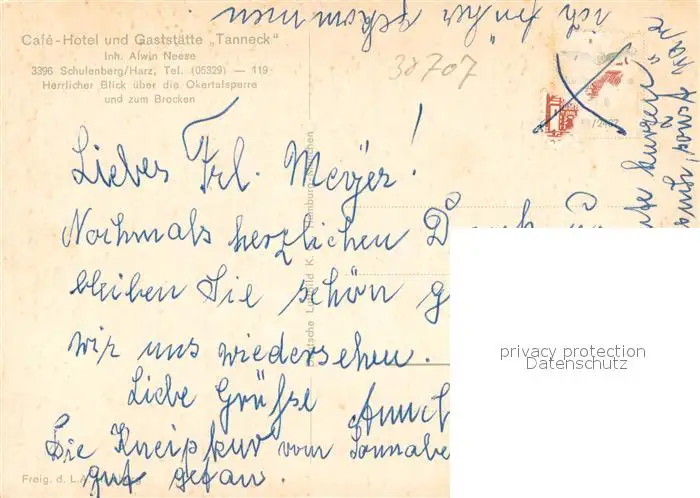 Café-Hotel und Gaststätte „Tanneck"
Inh. Alwin Neese
3396 Schulenberg/Harz, Tel. (05329) — 119
Herrlicher Blick über die Okertalsperre
und zum Brocken
38707
Liebes Frl. Meyer!
Nochmals herzlichen Dank
bleiben Sie schön
wir uns wiedersehen.
Liebe Grüße
Die Kneipkur vom
gut getan.
ich früher gekommen
kurzen
sonst wäre
Freig. d.
privacy protection
Datenschutz